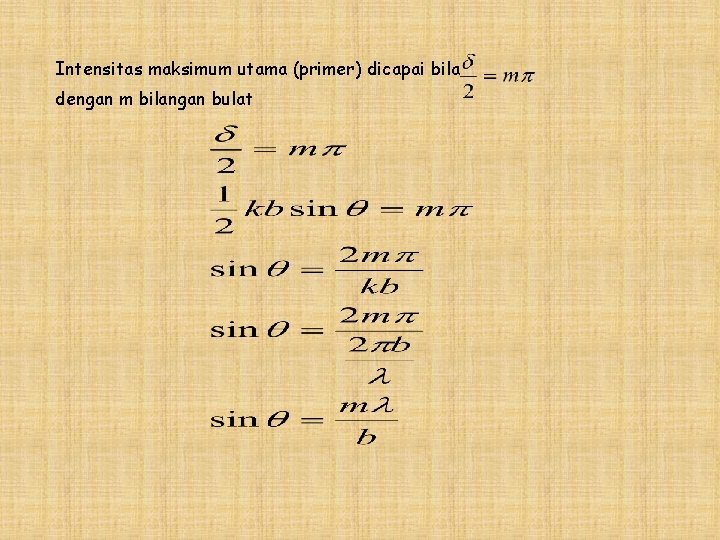 Intensitas maksimum utama (primer) dicapai bila δ/2 = mπ
dengan m bilangan bulat
δ/2 = mπ
1/2 kb sin θ = mπ
sin θ = 2mπ/kb
sin θ = 2mπ/(2πb/λ)
sin θ = mλ/b